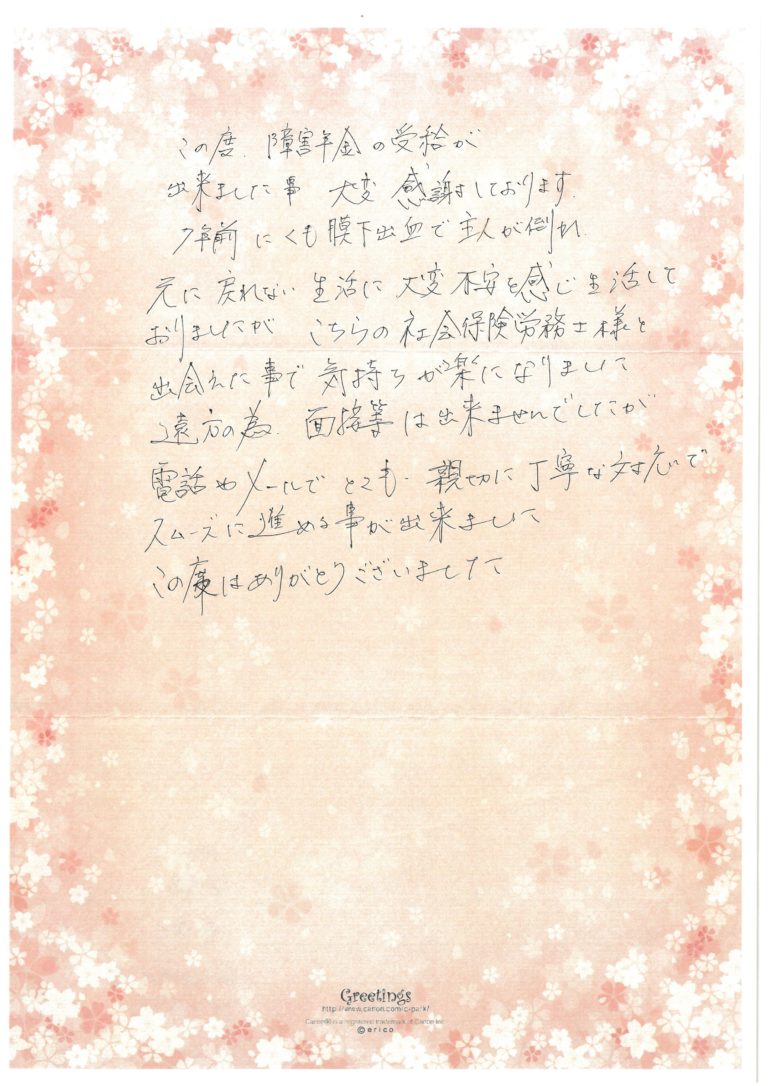 この度、障害年金の受給が
出来ました事 大変 感謝しております。
7年前にくも膜下出血で主人が倒れ
元に戻れない生活に大変不安を感じ生活して
おりましたが こちらの社会保険労務士様と
出会えた事で気持ちが楽になりました
遠方の為、面接等は出来ませんでしたが
電話やメールでとても親切に丁寧な対応で
スムーズに進める事が出来ました
この度はありがとうございました
Greetings
http://www.canon.com/c-park/
Canon is a registered trademark of Canon Inc.
©erico